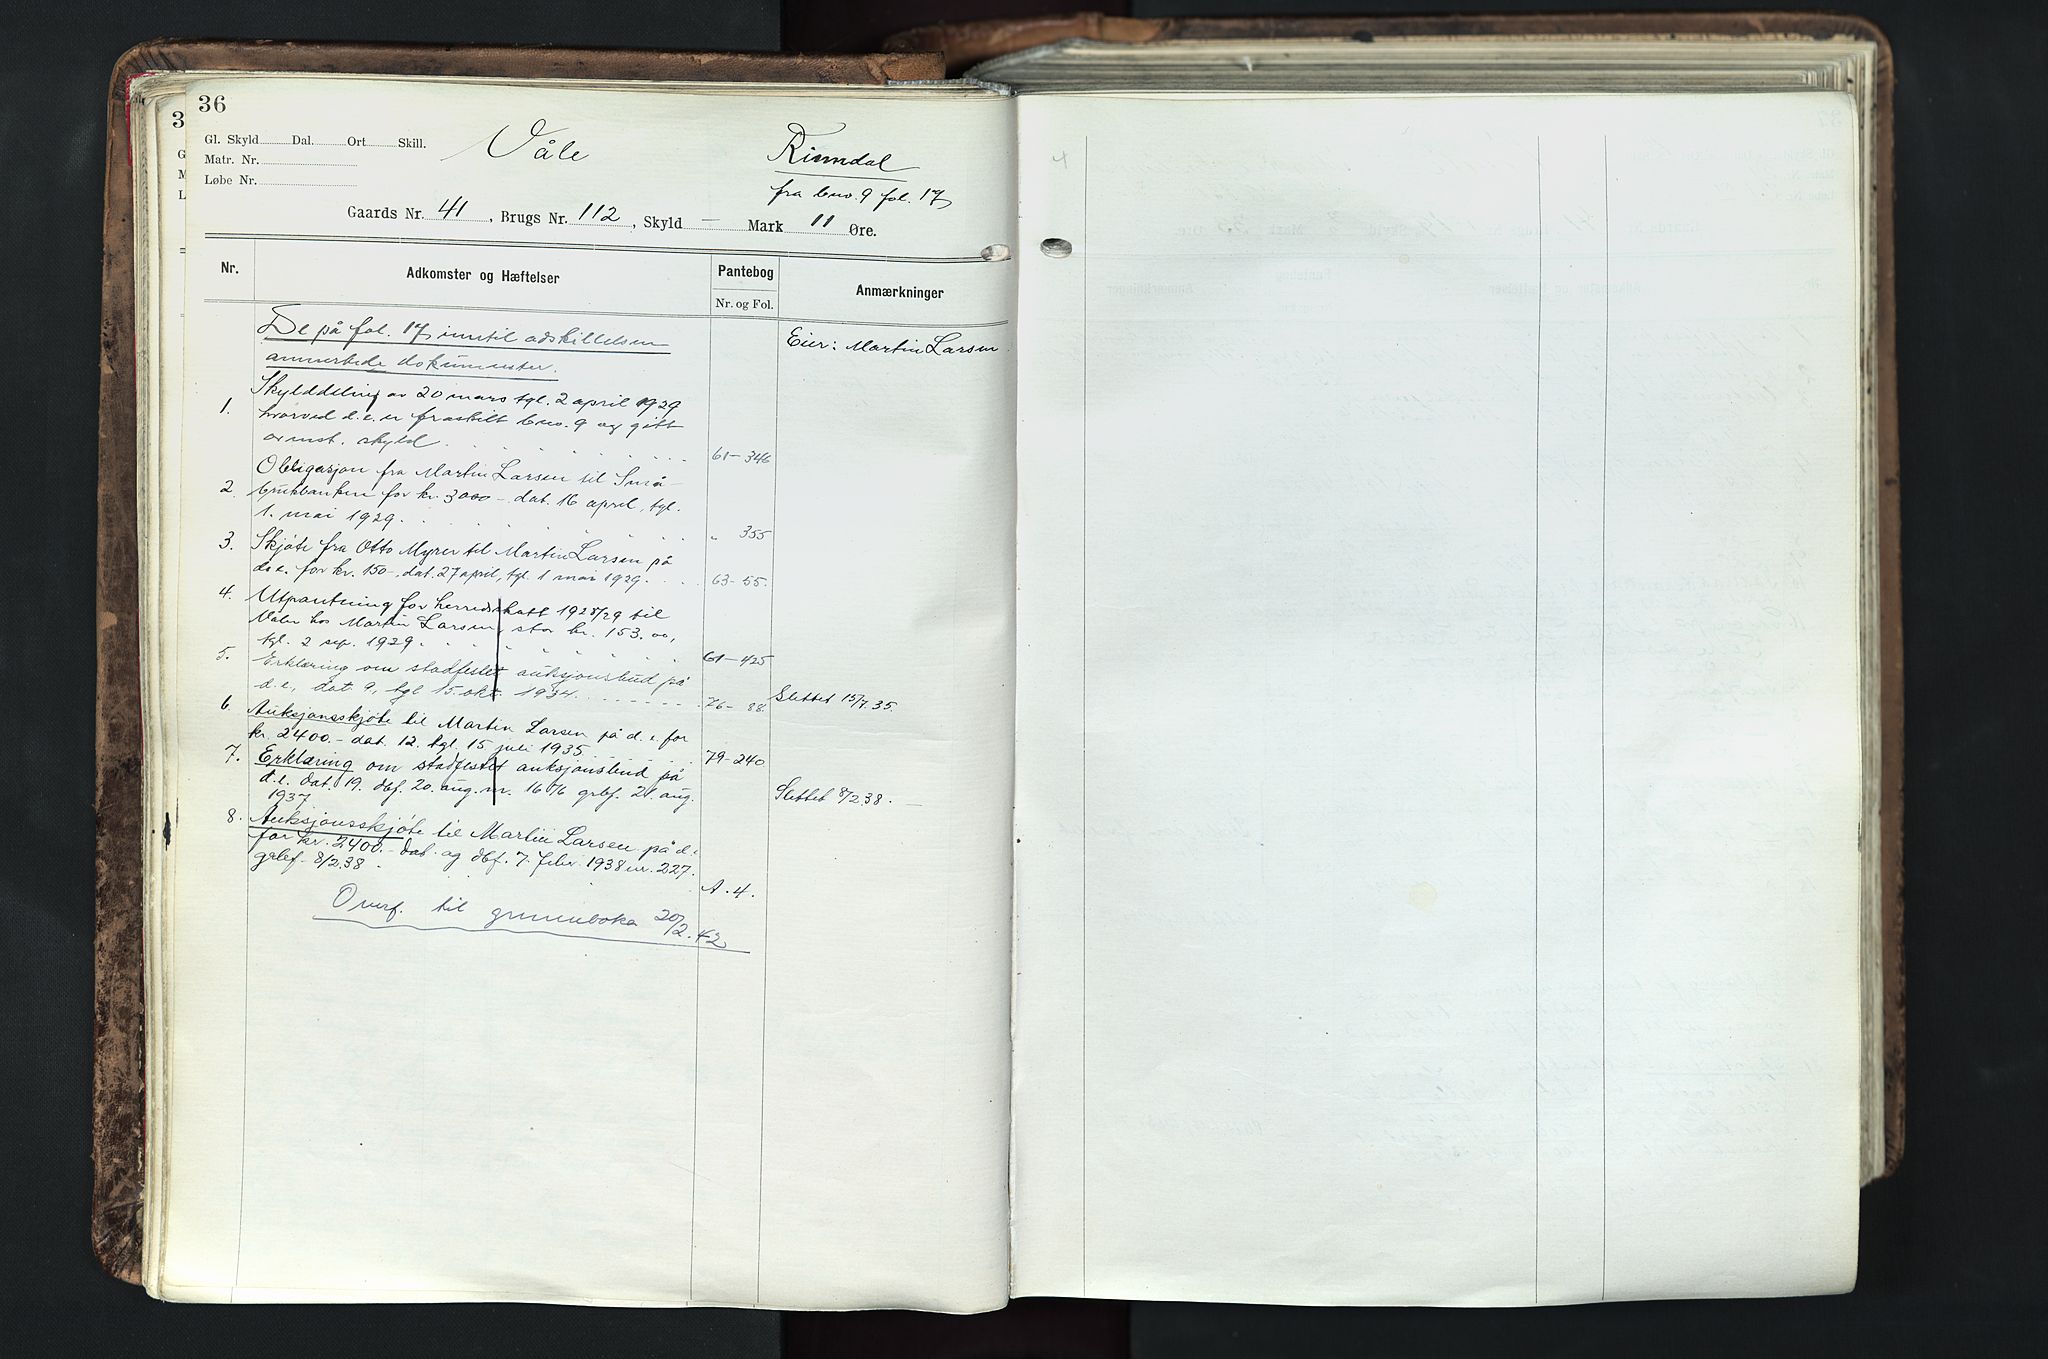 36
Gl. Skyld Dal. Ort Skill.
Matr. Nr.
Løbe Nr.
Våle
Rinndal
fra bno. 9 fol. 17
Gaards Nr. 41, Brugs Nr. 112, Skyld — Mark 11 Øre.
Nr. Adkomster og Hæftelser Pantebog Anmærkninger
Nr. og Fol.
De på fol. 17 inntil adskillelsen
anmerkede dokumenter.
Eier: Martin Larsen
1. Skylddeling av 20 mars tgl. 2 april 1929
hvorved d.e. er fraskilt bno. 9 og gitt
ovenst. skyld 61–346
2. Obligasjon fra Martin Larsen til Små-
brukbanken for kr. 3000– dat. 16 april, tgl.
1. mai 1929. " 355
3. Skjøte fra Otto Myrer til Martin Larsen på
d.e. for kr. 150–, dat. 27 april, tgl. 1 mai 1929. 63–55.
4. Utpantning for herredskatt 1928/29 til
Våler hos Martin Larsen, stor kr. 153.00,
tgl. 2 sep. 1929. 61–425
5. Erklæring om stadfestet auksjonsbud på
d.e., dat. 9, tgl 15. okt. 1934. 76–88. Slettet 15/7.35.
6. Auksjonsskjøte til Martin Larsen på d.e. for
kr. 2400.– dat. 12. tgl. 15 juli 1935. 79–240
7. Erklæring om stadfestet auksjonsbud på
d.e. dat. 19. dbf. 20. aug. nr. 1676 grbf. 21. aug.
1937 Slettet 8/2.38. —
8. Auksjonsskjøte til Martin Larsen på d.e
for kr. 2400.– dat. og dbf. 7. febr. 1938 nr. 227.
grbf. 8/2.38. A. 4.
Overf. til grunnboka 20/2.42